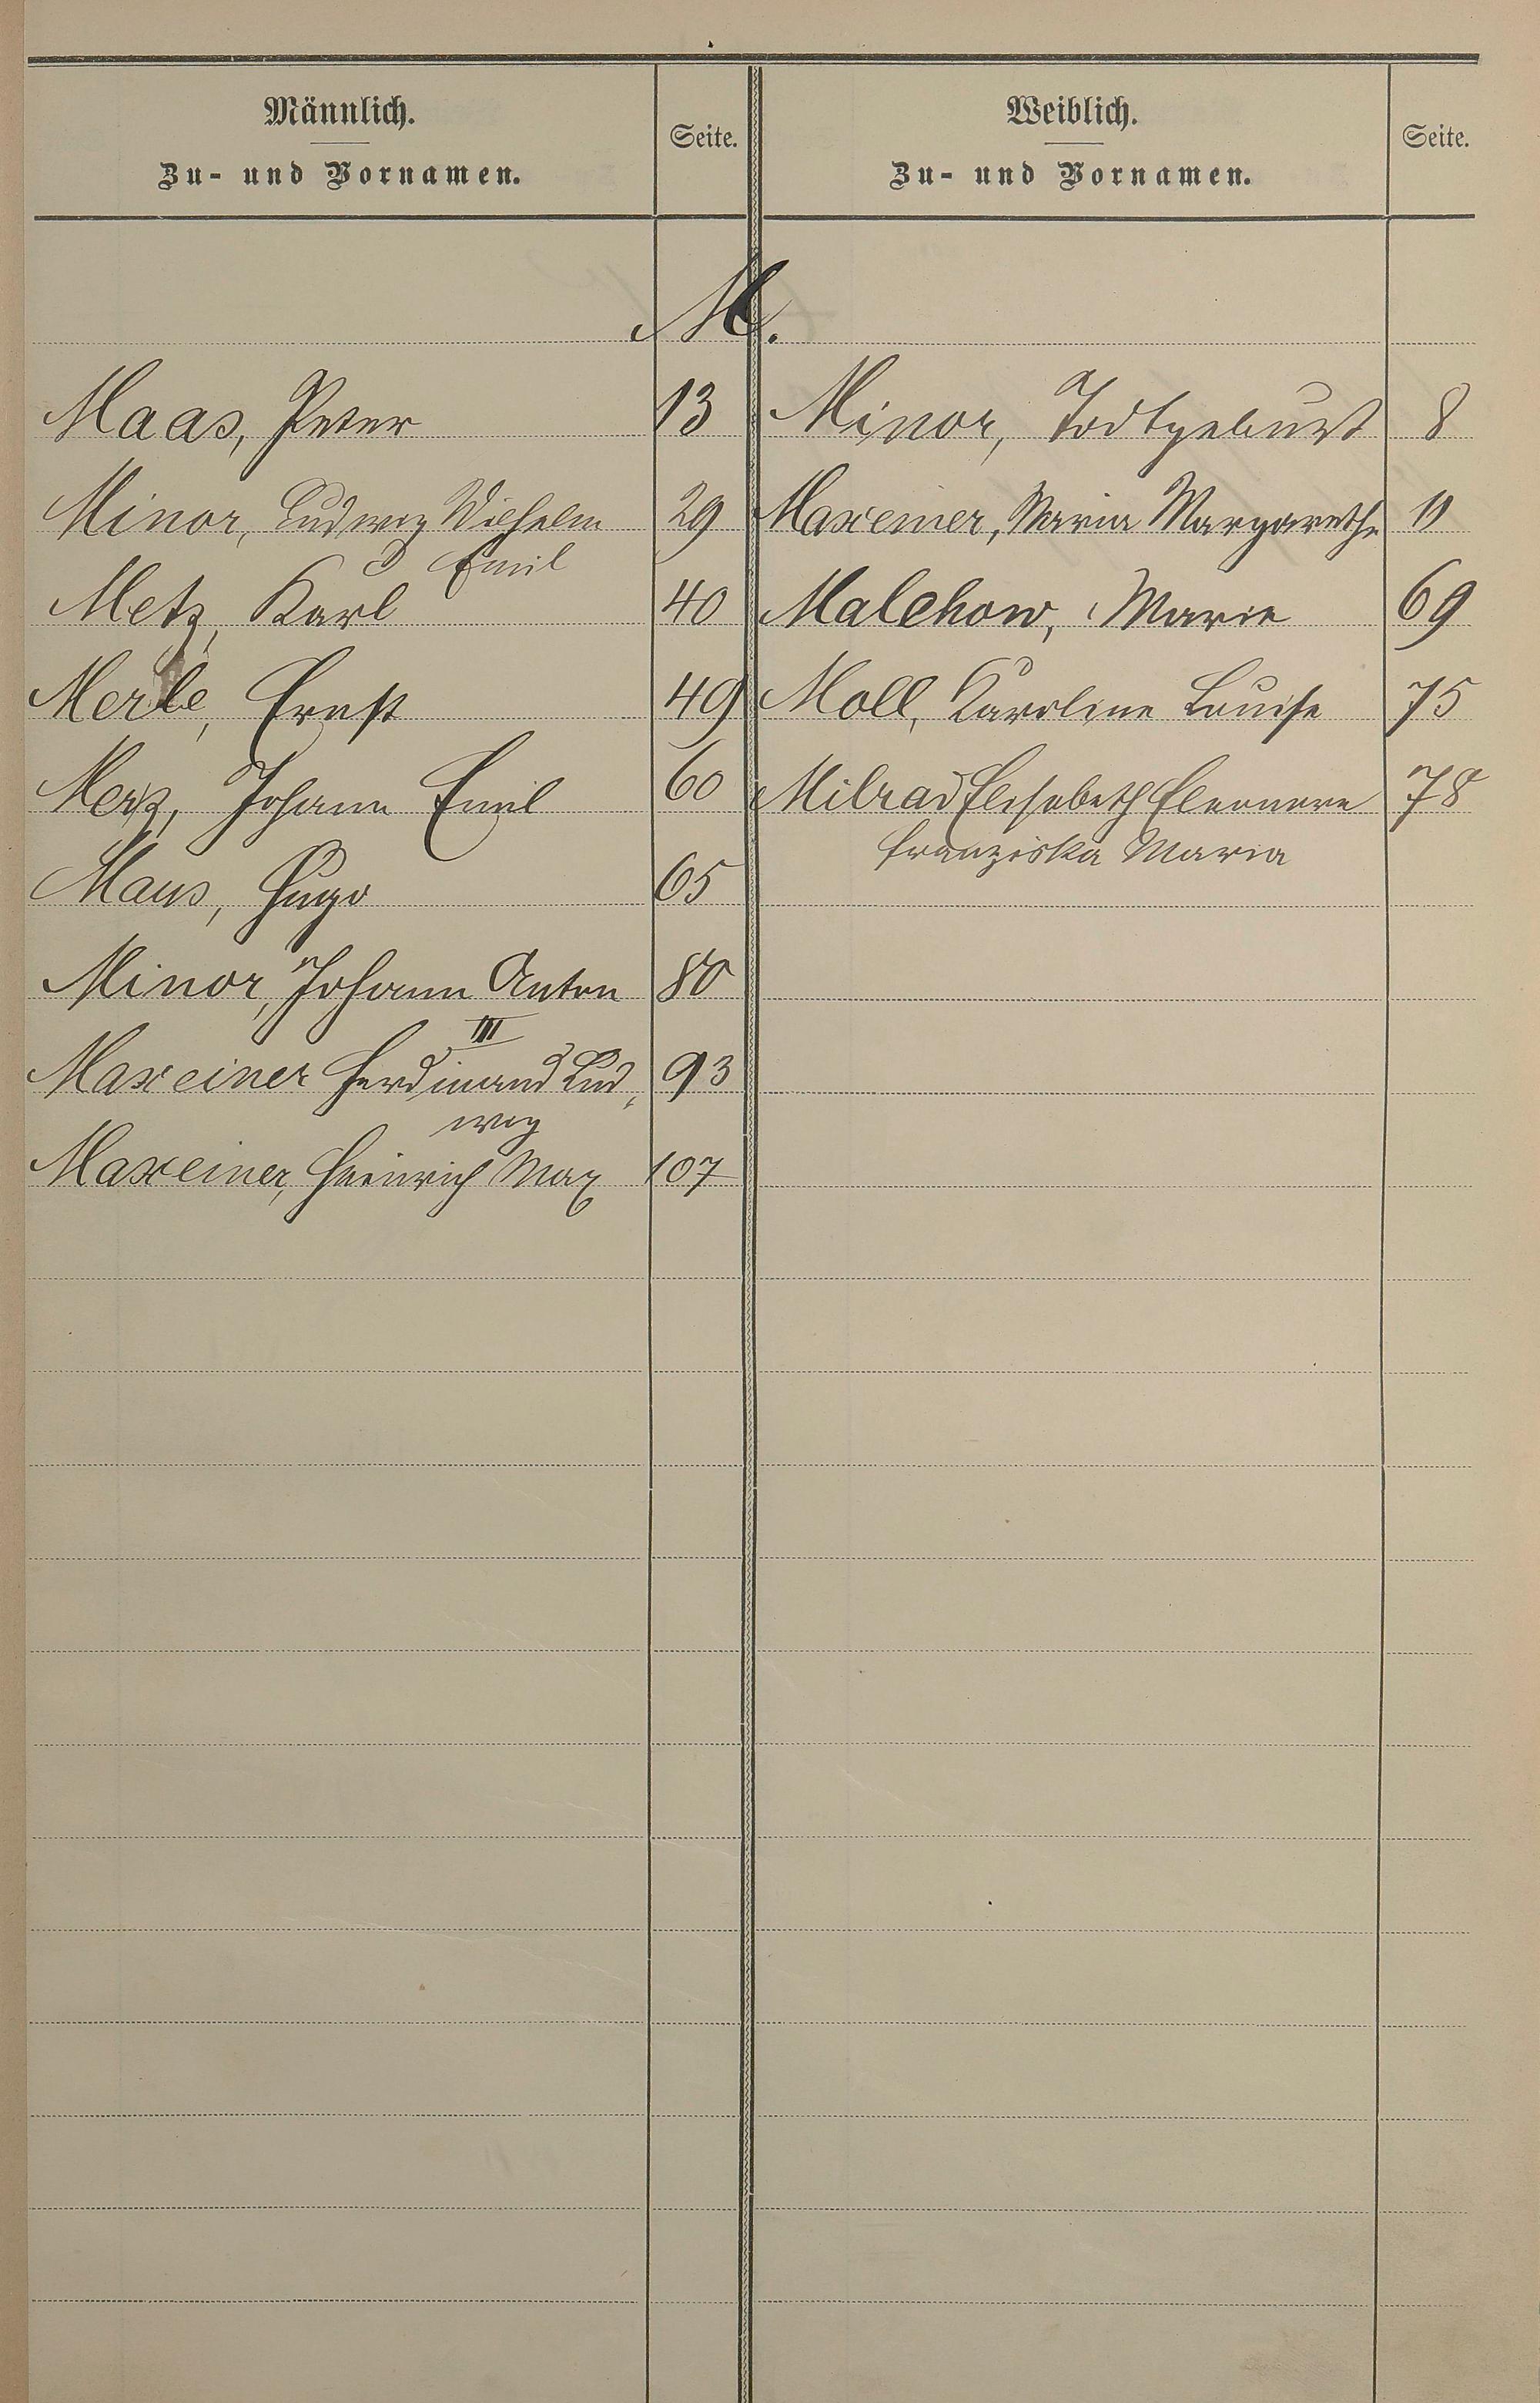 Männlich.
Zu- und Vornamen.
Seite.
Weiblich.
Zu- und Vornamen.
Seite.
M.
Maas, Peter 13
Minor, Ludwig Wilhelm 29
Emil
Metz, Karl 40
Merle, Ernst 49
Merz, Johann Emil 60
Maus, Hugo 65
Minor, Johann Anton 80
III
Maxeiner Ferdinand Lud, 93
wig
Maxeiner, Heinrich Max 107
Minor, Todtgeburt 8
Maxeiner, Maria Margarethe 11
Malchow, Marie 69
Moll, Karoline Louise 75
Milrad Elisabeth Eleonore 78
Franziska Maria